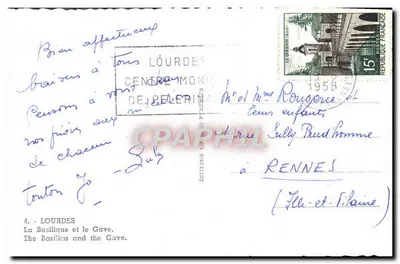 Bien affectueux
baisers à tous
Pensons à vous dans
nos prières aux
de chacun
tonton Jo - Lulu
4. - LOURDES
La Basilique et le Gave.
The Basilica and the Gave.
LOURDES
CENTRE MONDIAL
DE PELERINAGE
1958
15F
REPUBLIQUE FRANÇAISE
Mr et Mme Rougerie et
leurs enfants
rue Sully Prudhomme
à RENNES
(Ille-et-Vilaine)
CPArama.com